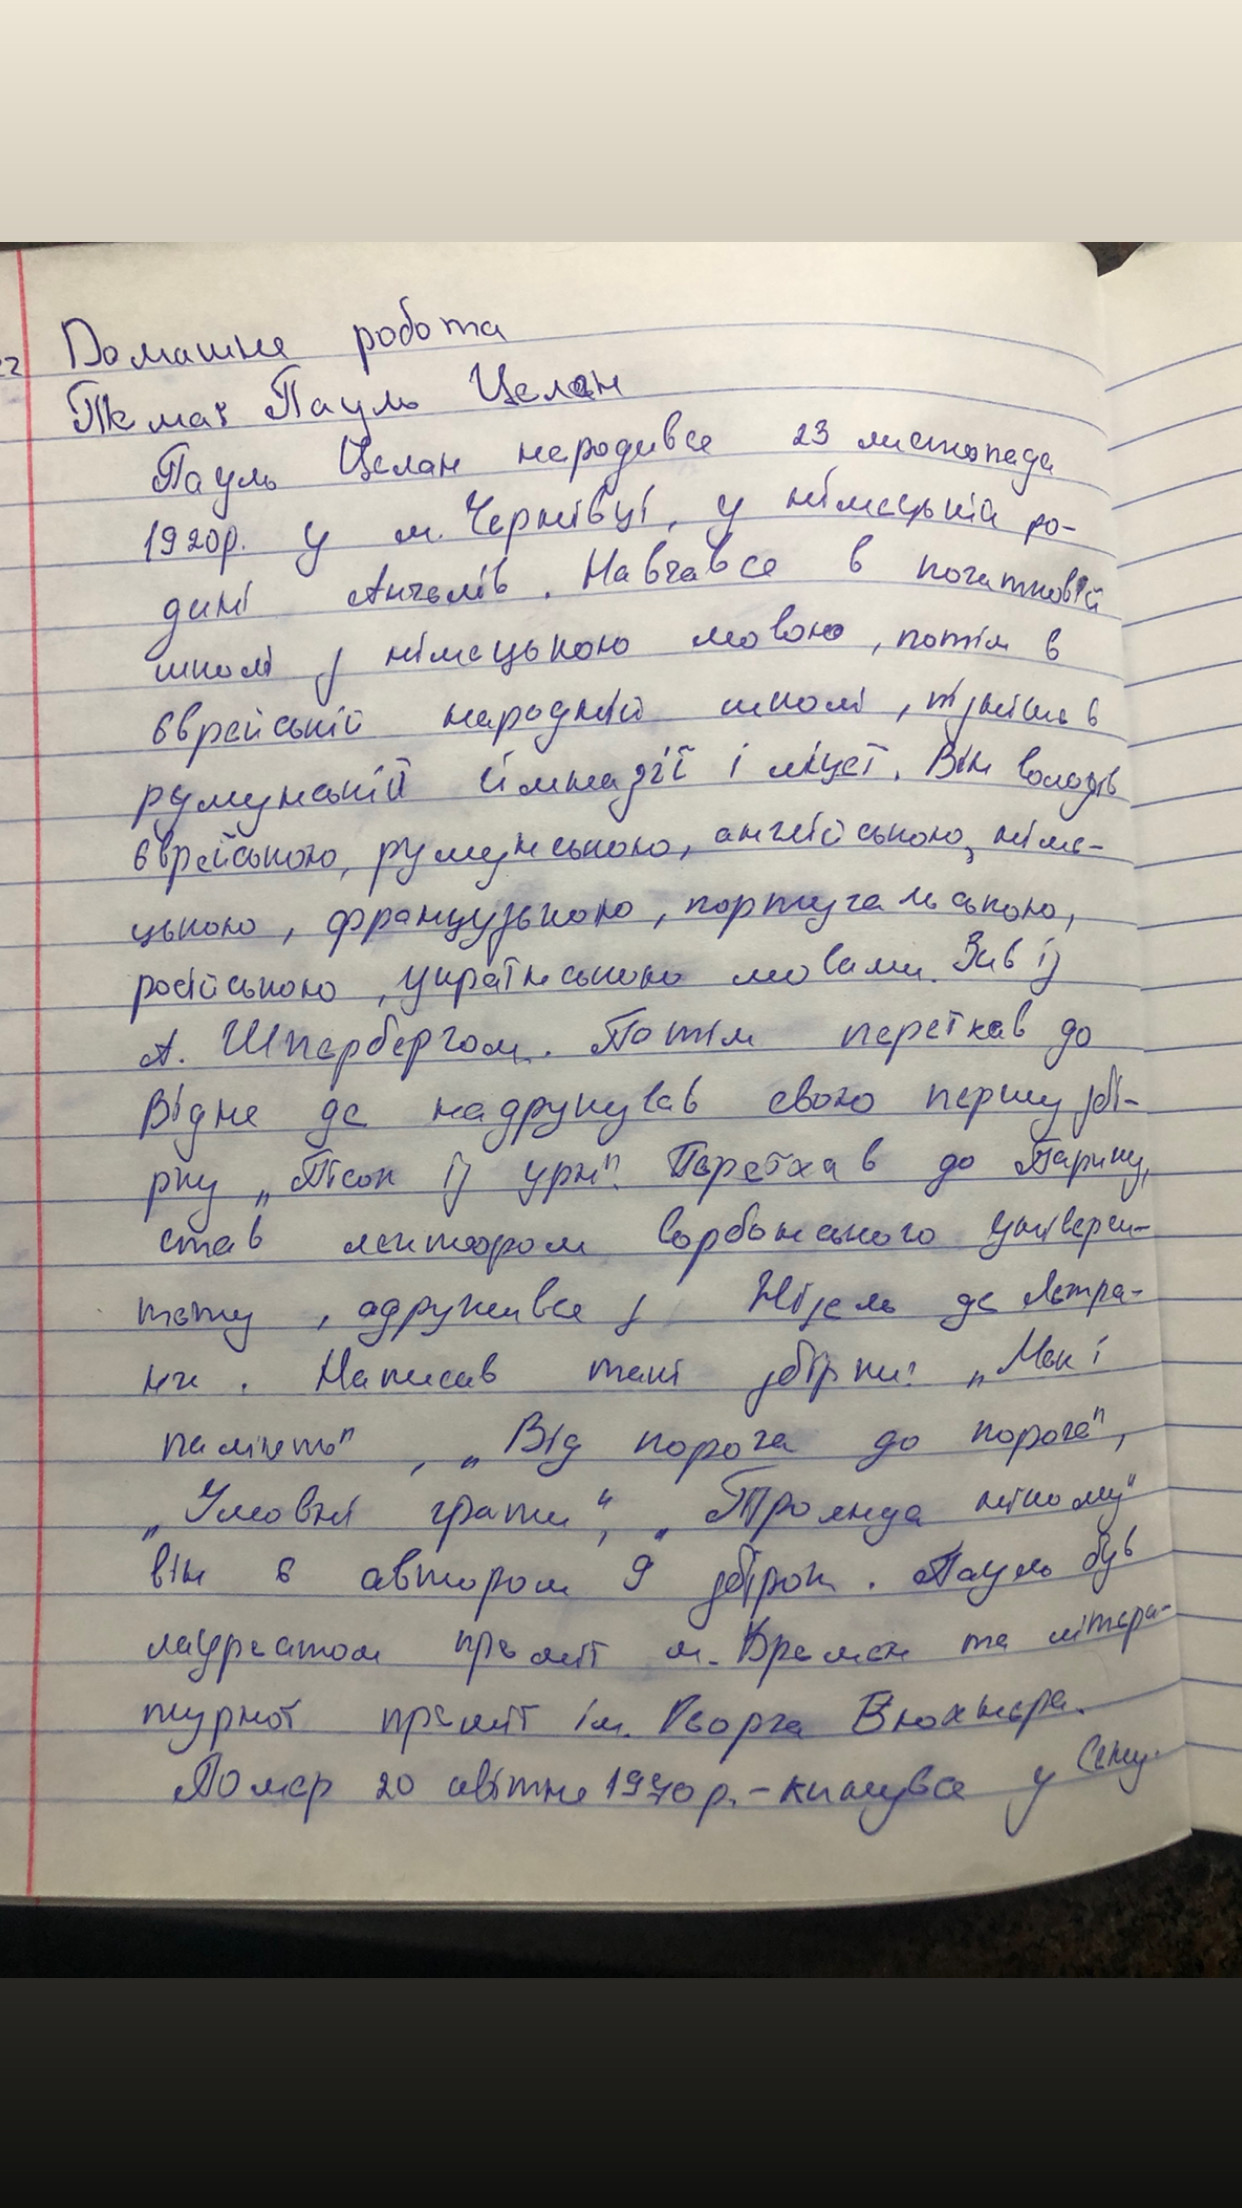 Домашня робота
Пауль Целан
Пауль Целан народився 23 листопада
1920р. у м. Чернівці, у німецькій ро-
дині Анчелів. Навчався в початковій
школі з німецькою мовою, потім в
єврейській народній школі, пізніше в
румунській гімназії і ліцеї. Він володів
єврейською, румунською, англійською, німе-
цькою, французькою, португальською,
російською, українською мовами. Жив із
А. Шпербергом. Потім переїхав до
Відня де надрукував свою першу збі-
рку „Пісок із урн". Переїхав до Парижу,
став лектором Сорбонського універси-
тету, одружився з Жізель де Летра-
нж. Написав такі збірки: „Мак і
память", „Від порога до порога",
„Умовні грати", „Троянда нікому"
він є автором 9 збірок. Пауль був
лауреатом премії м. Бремен та літера-
турної премії ім. Георга Бюхнера.
Помер 20 квітня 1970р. - кинувся у Сену.